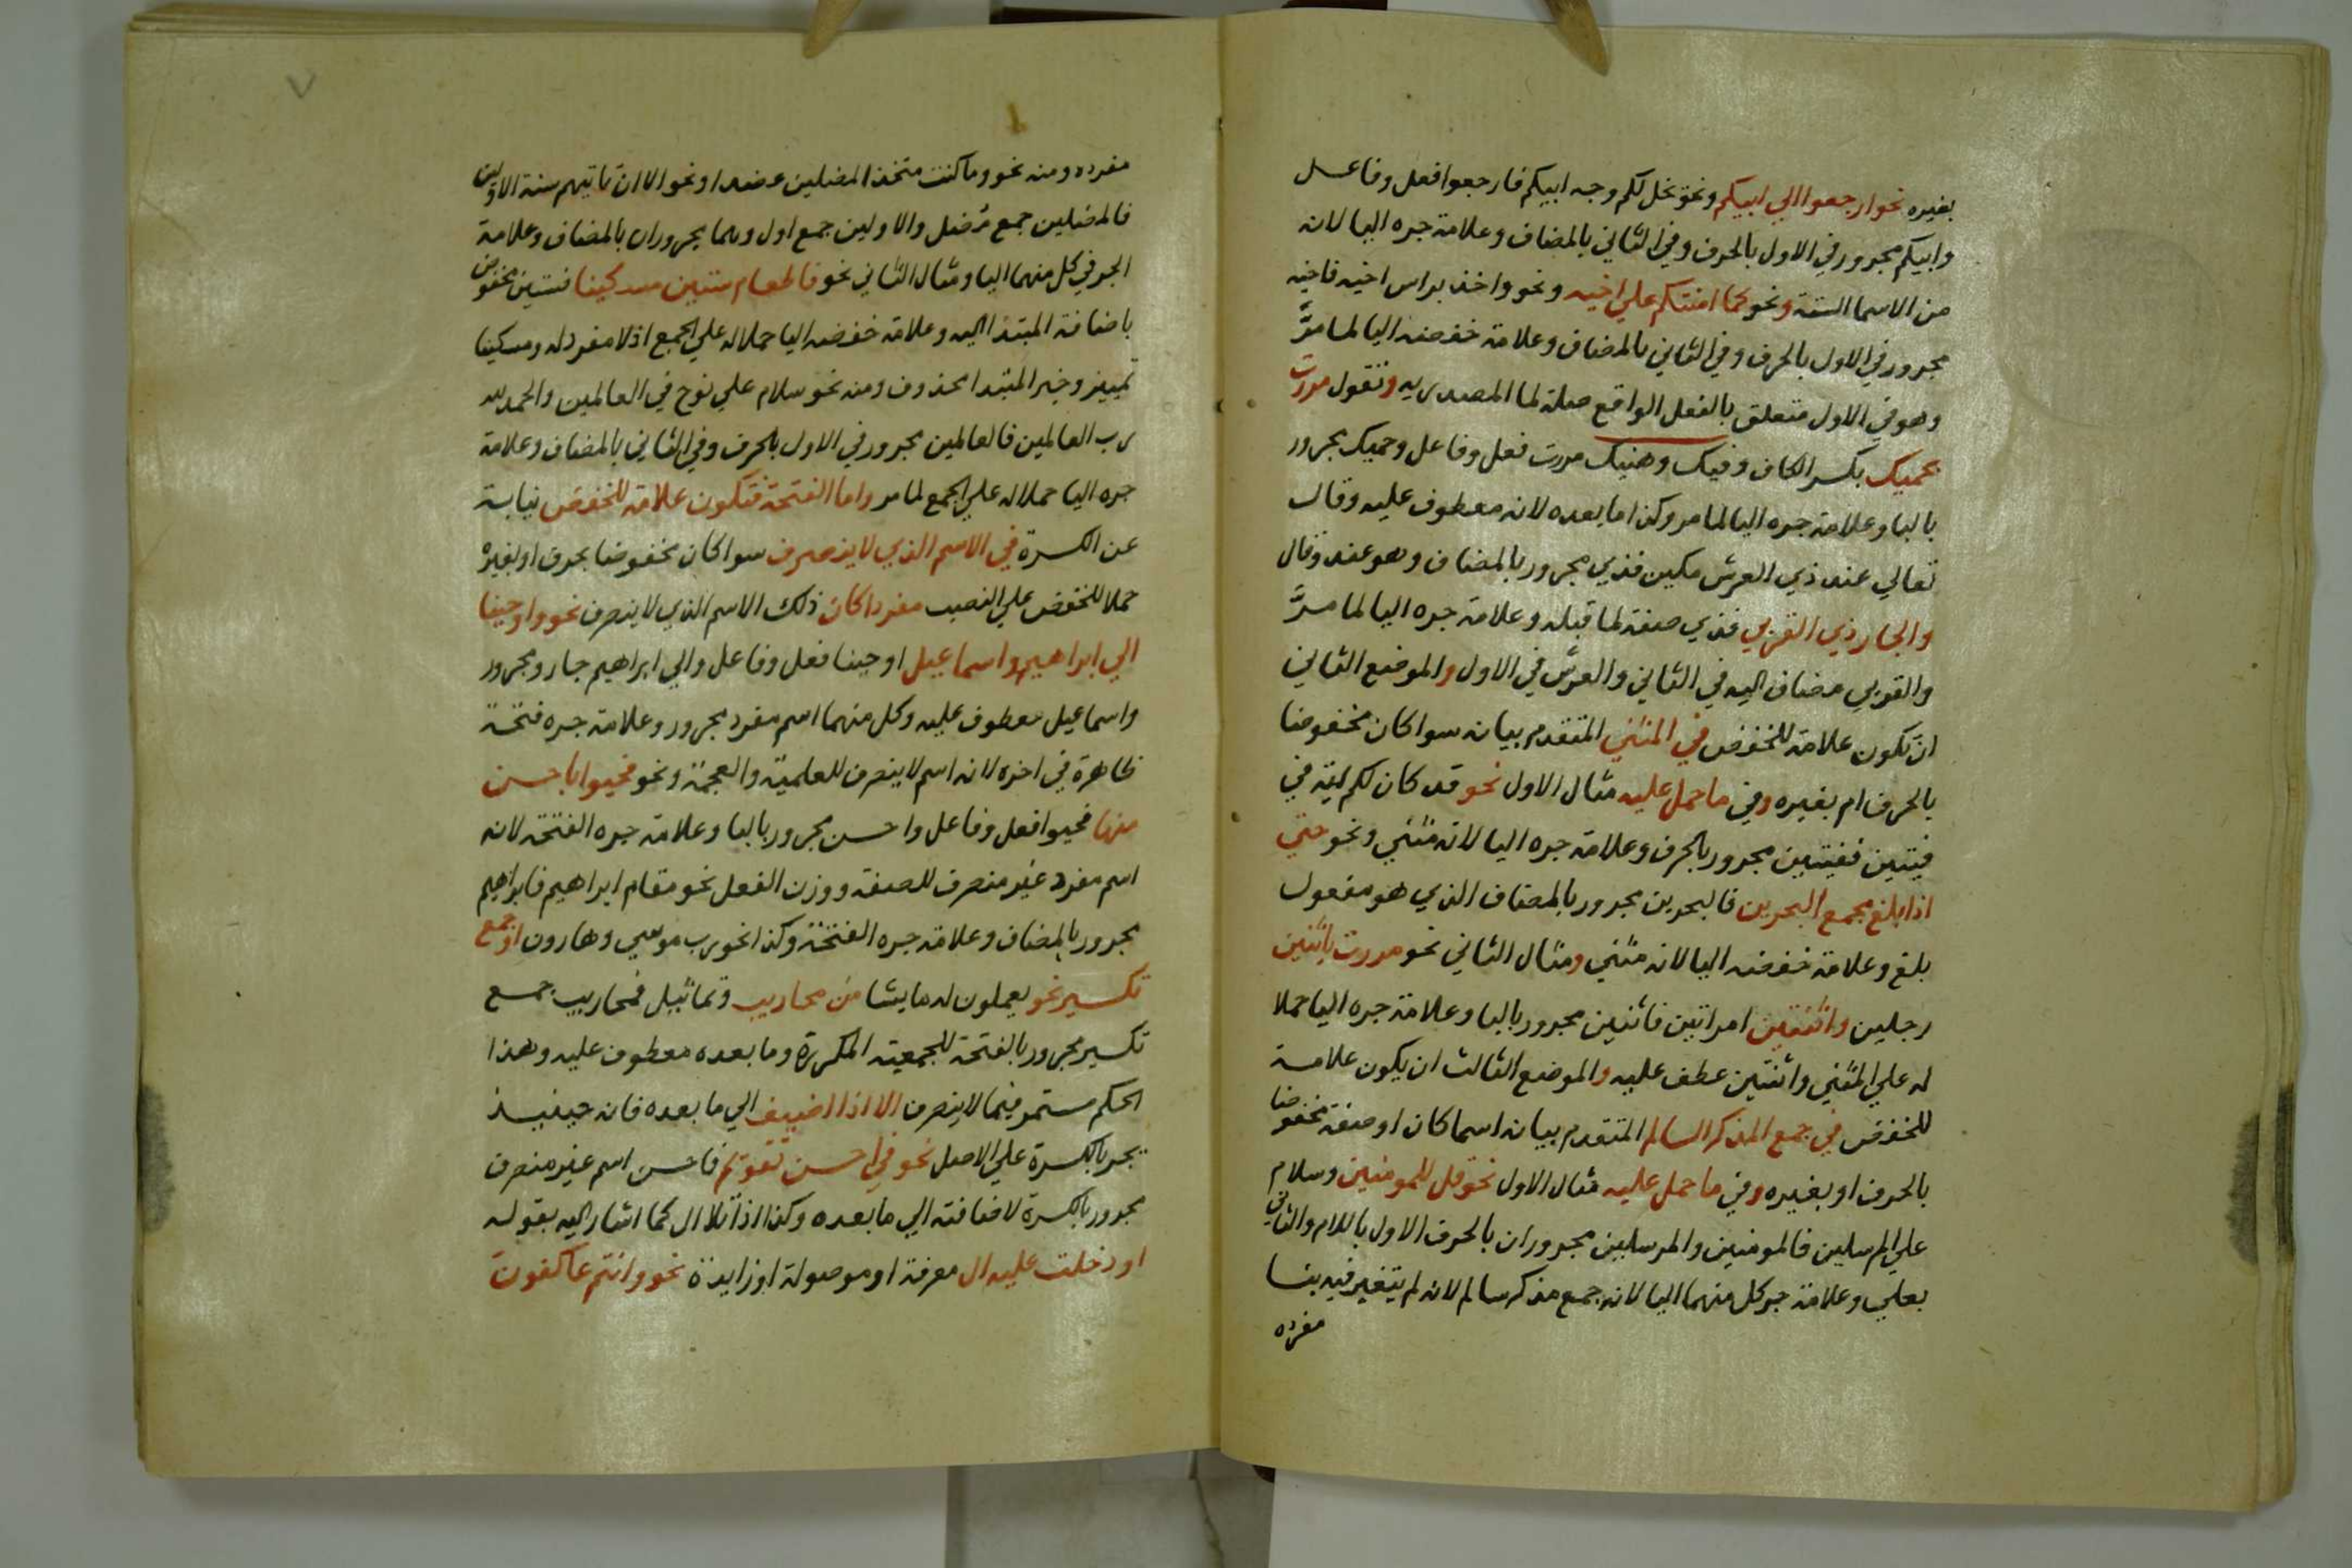 بغيره نحو ارجعوا الي ابيكم ونحو يخل لكم وجه ابيكم فارجعوا فعل وفاعل
وابيكم مجرور في الاول بالحرف وفي الثاني بالمضاف وعلامة جره اليا لانه
من الاسما الستة ونحو كما امنتكم علي اخيه ونحو واخذ براس اخيه فاخيه
مجرور في الاول بالحرف وفي الثاني بالمضاف وعلامة خفضه اليا لما مرَّ
وهو في الاول متعلق بالفعل الواقع صلة لما المصدريه وتقول مررت
بحميك بكسر الكاف وفيك وهنيك مررت فعل وفاعل وحميك مجرور
بالبا وعلامة جره اليا لما مر وكذا ما بعده لانه معطوف عليه وقال
تعالي عند ذي العرش مكين فذي مجرور بالمضاف وهو عند وقال
والجار ذي القربي فذي صفة لما قبله وعلامة جره اليا لما مرَّ
والقربي مضاف اليه في الثاني والعرش في الاول والموضع الثاني
ان تكون علامة للخفض في المثني المتقدم بيانه سوا كان مخفوضا
بالحرف ام بغيره وفي ما حمل عليه مثال الاول نحو قد كان لكم اية في
فيتين ففيتين مجرور بالحرف وعلامة جره اليا لانه مثني ونحو حتي
اذا بلغ مجمع البحرين فالبحرين مجرور بالمضاف الذي هو مفعول
بلغ وعلامة خفضه اليا لانه مثني ومثال الثاني نحو مررت باثنين
رجلين واثنتين امراتين فاثنين مجرور بالبا وعلامة جره اليا حملا
له علي المثني واثنتين عطف عليه والموضع الثالث ان يكون علامة
للخفض في جمع المذكر السالم المتقدم بيانه اسما كان او صفة مخفوضا
بالحرف او بغيره وفي ما حمل عليه مثال الاول نحو قل للمومنين وسلام
علي المرسلين فالمومنين والمرسلين مجروران بالحرف الاول باللام والثاني
بعلي وعلامة جر كل منهما اليا لانه جمع مذكر سالم لانه لم يتغير فيه بنا
مفرده
مفرده ومنه نحو وما كنت متخذ المضلين عضدا ونحو الا ان تاتيهم سنة الاولين
فالمضلين جمع مُضل والاولين جمع اول وهما مجروران بالمضاف وعلامة
الجر في كل منهما اليا ومثال الثاني نحو فاطعام ستين مسكينا فستين مخفوض
باضافة المبتدا اليه وعلامة خفضه اليا حملا له علي الجمع اذ لا مفرد له ومسكينا
تمييز وخبر المبتدا محذوف ومنه نحو سلام علي نوح في العالمين والحمد لله
رب العالمين فالعالمين مجرور في الاول بالحرف وفي الثاني بالمضاف وعلامة
جره اليا حملا له علي الجمع لما مر واما الفتحة فتكون علامة للخفض نيابة
عن الكسرة في الاسم الذي لا ينصرف سوا كان مخفوضا بحرف او بغيره
حملا للخفض علي النصب مفردا كان ذلك الاسم الذي لا ينصرف نحو واوحينا
الي ابراهيم واسماعيل اوحينا فعل وفاعل والي ابراهيم جار ومجرور
واسماعيل معطوف عليه وكل منهما اسم مفرد مجرور وعلامة جره فتحة
ظاهرة في اخره لانه اسم لا ينصرف للعلمية والعجمة ونحو فحيوا باحسن
منها فحيوا فعل وفاعل واحسن مجرور بالبا وعلامة جره الفتحة لانه
اسم مفرد غير منصرف للصفة ووزن الفعل نحو مقام ابراهيم فابراهيم
مجرور بالمضاف وعلامة جره الفتحة وكذا نحو رب موسي وهارون او جمع
تكسير نحو يعملون له ما يشا من محاريب وتماثيل فمحاريب جمع
تكسير مجرور بالفتحة للجمعية المكررة وما بعده معطوف عليه وهذا
الحكم مستمر فيما لا ينصرف الا اذا اضيف الي ما بعده فانه حينيذ
يجر بالكسرة علي الاصل نحو في احسن تقويم فاحسن اسم غير منصرف
مجرور بالكسرة لاضافته الي ما بعده وكذا اذا تلا ال كما اشار اليه بقوله
او دخلت عليه ال معرفة او موصولة او زايدة نحو وانتم عاكفون